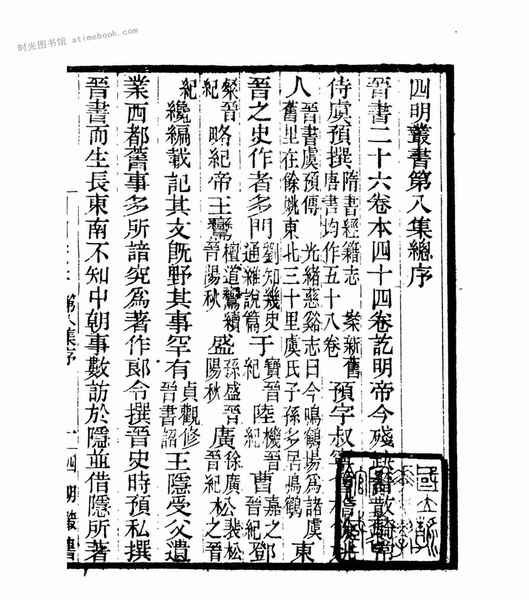 时光图书馆 atimebook.com
四明叢書第八集總序
晉書二十六卷本四十四卷訖明帝今殘缺晉散騎常
侍虞預撰隋書經籍志 案新舊唐書均作五十八卷 預字叔寧
人晉書虞預傳 光緒慈谿志曰今鳴鶴場為諸虞舊里在餘姚東北三十里虞氏子孫多居鳴鶴 東
晉之史作者多門劉知幾史通雜說篇于寶晉紀陸機晉紀曹嘉之晉紀鄧
粲晉紀略紀帝王鸞檀道鸞續晉陽秋盛孫盛晉陽秋廣徐廣晉紀松裴松之晉
紀纔編載記其文旣野其事罕有貞觀修晉書詔王隱受父遺
業西都舊事多所諳究為著作郎令撰晉史時預私撰
晉書而生長東南不知中朝事數訪於隱並借隱所著
第八集序
一
四明叢書